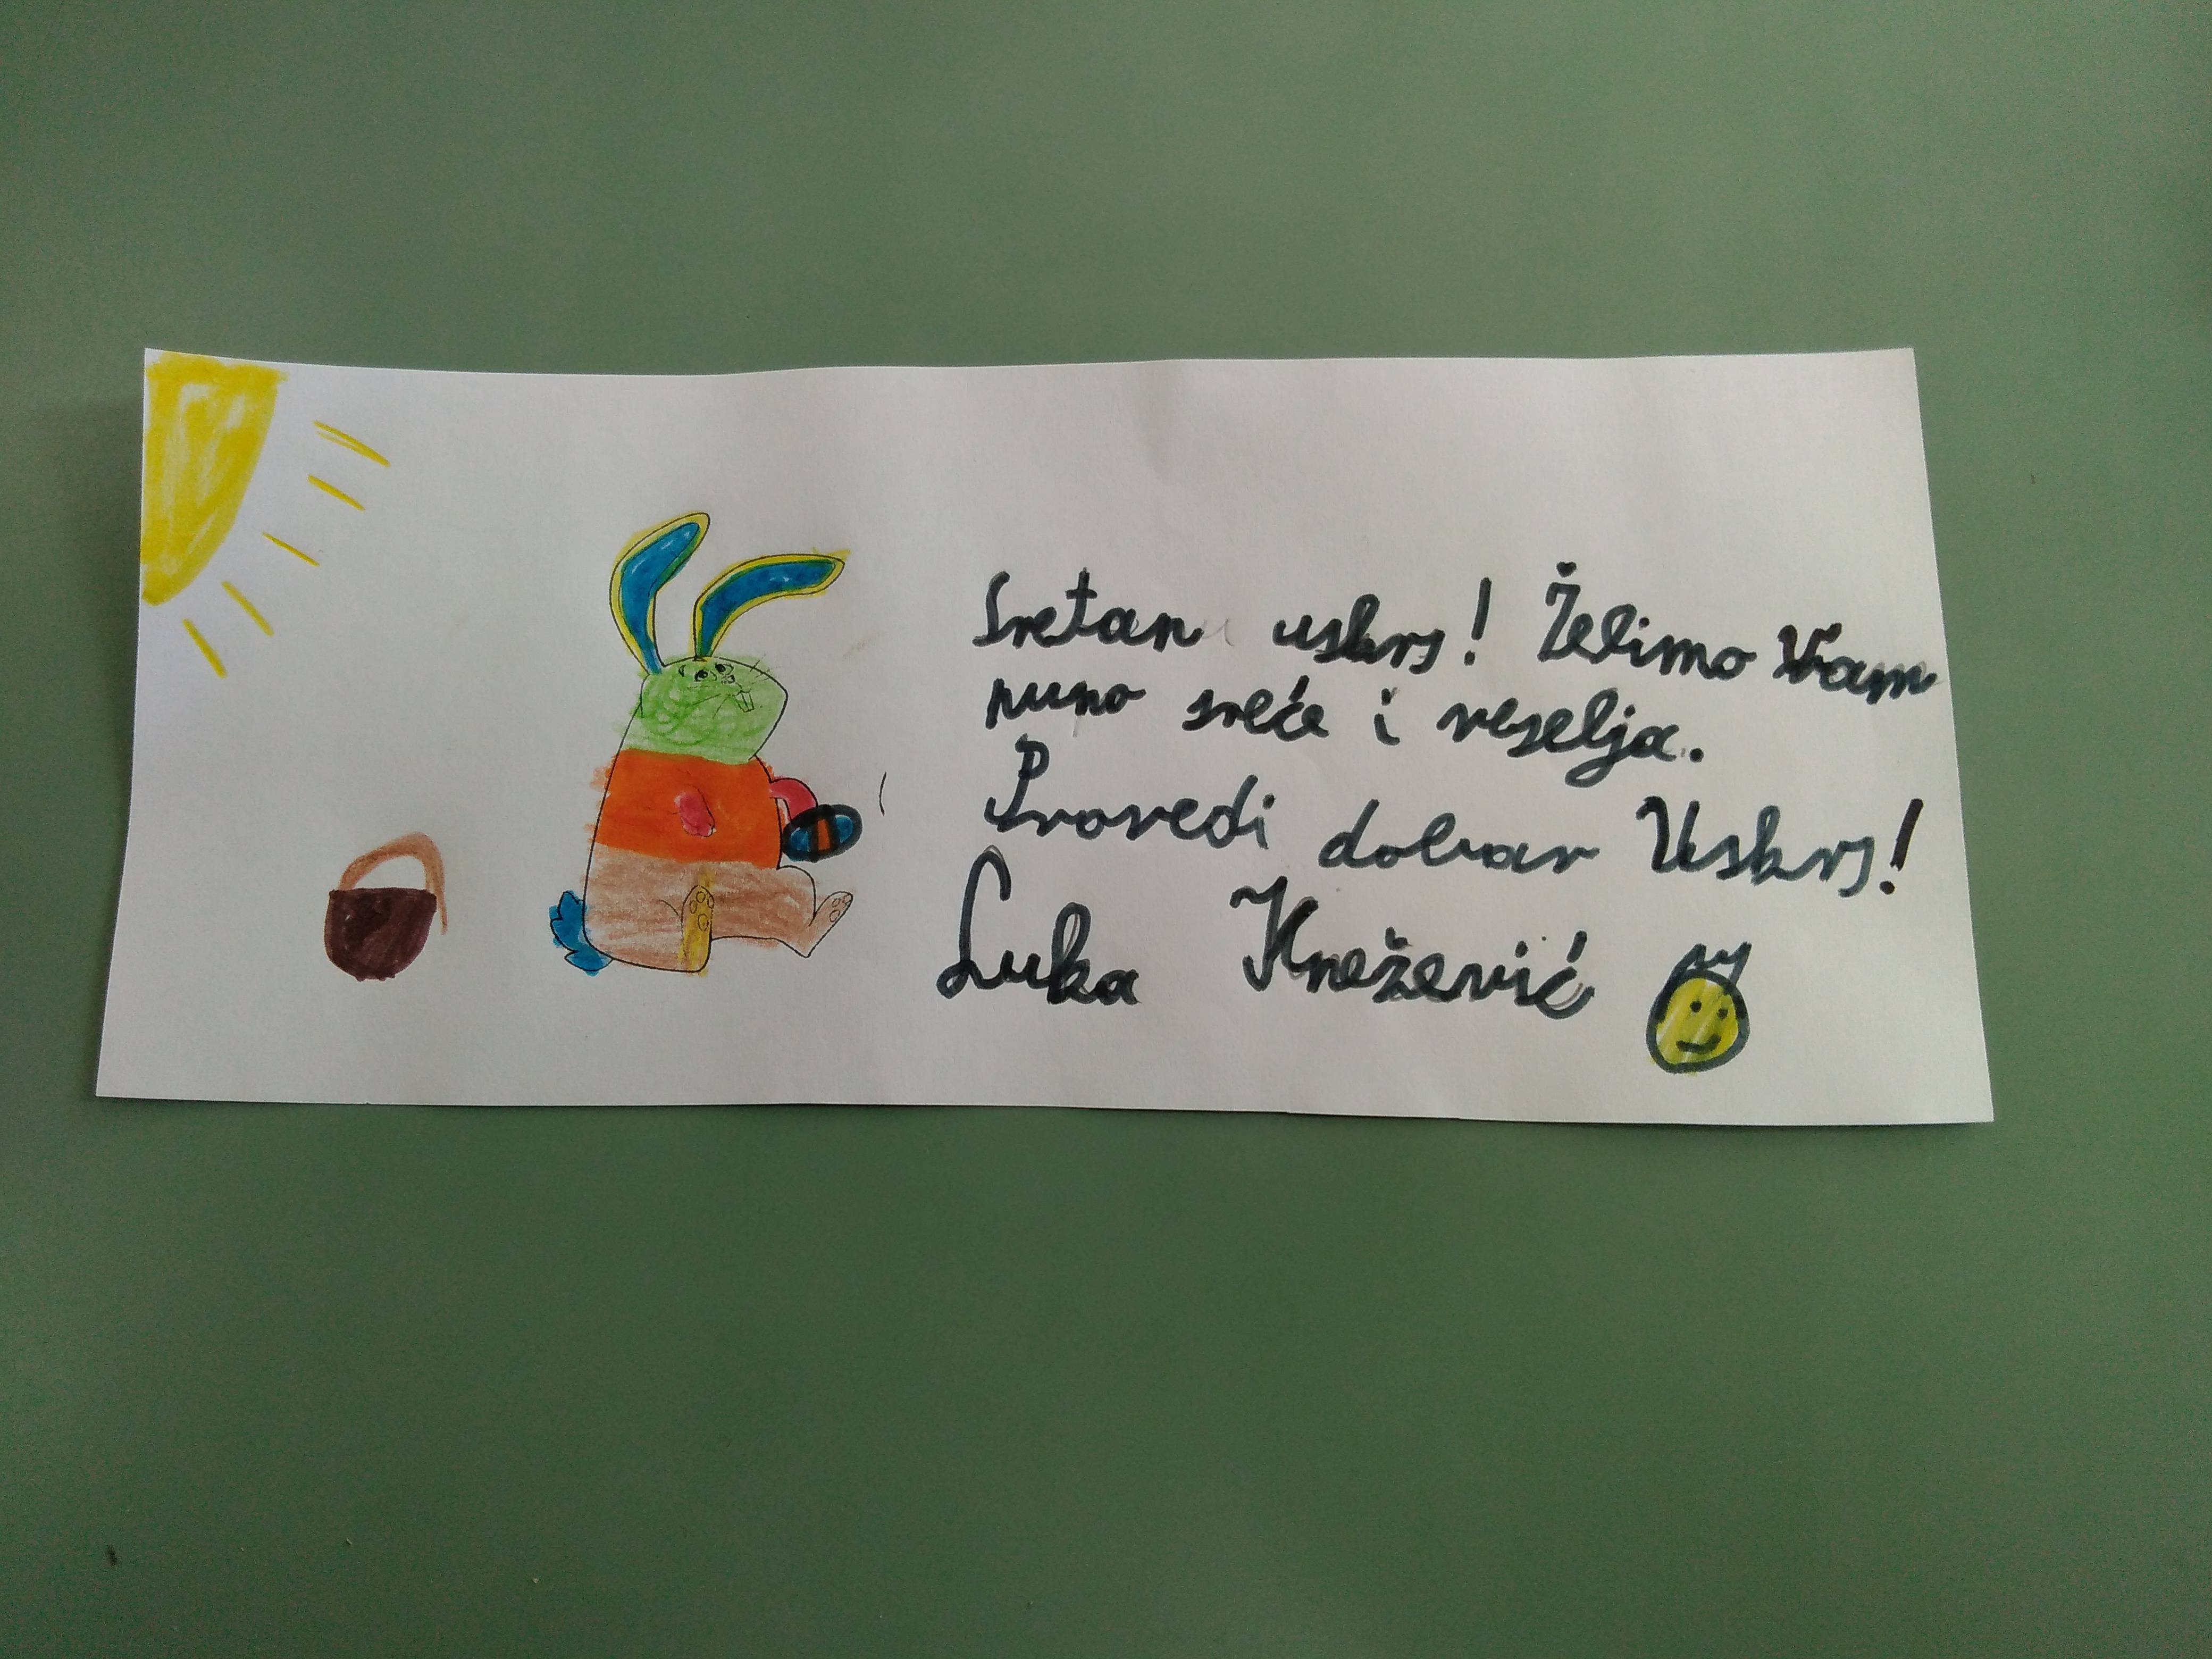 Sretan uskrs! Želimo Vam
puno sreće i veselja.
Provedi dobar Uskrs!
Luka Knežević